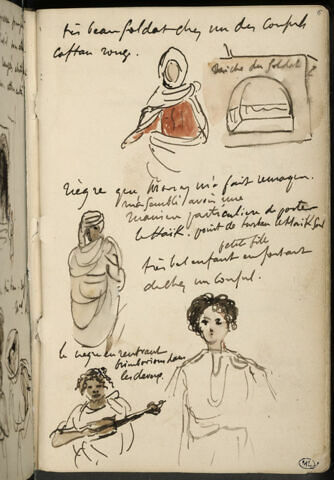 très beau soldat chez un des consuls
caftan rouge.
Niche du Soldat
nègre que Mornay m'a fait remarquer.
m'a semblé avoir une
manière particulière de porter
le Haïk. point de turban le Haïk seul
petite fille
très bel enfant en sortant
de chez un consul.
le nègre en rentrant
brimborions dans
les cheveux.
6
ML